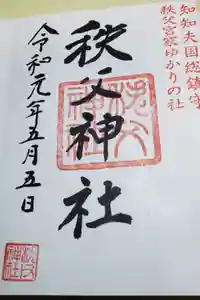 知知夫国総鎮守
秩父宮家ゆかりの社
秩父神社
令和元年五月五日
秩父神社